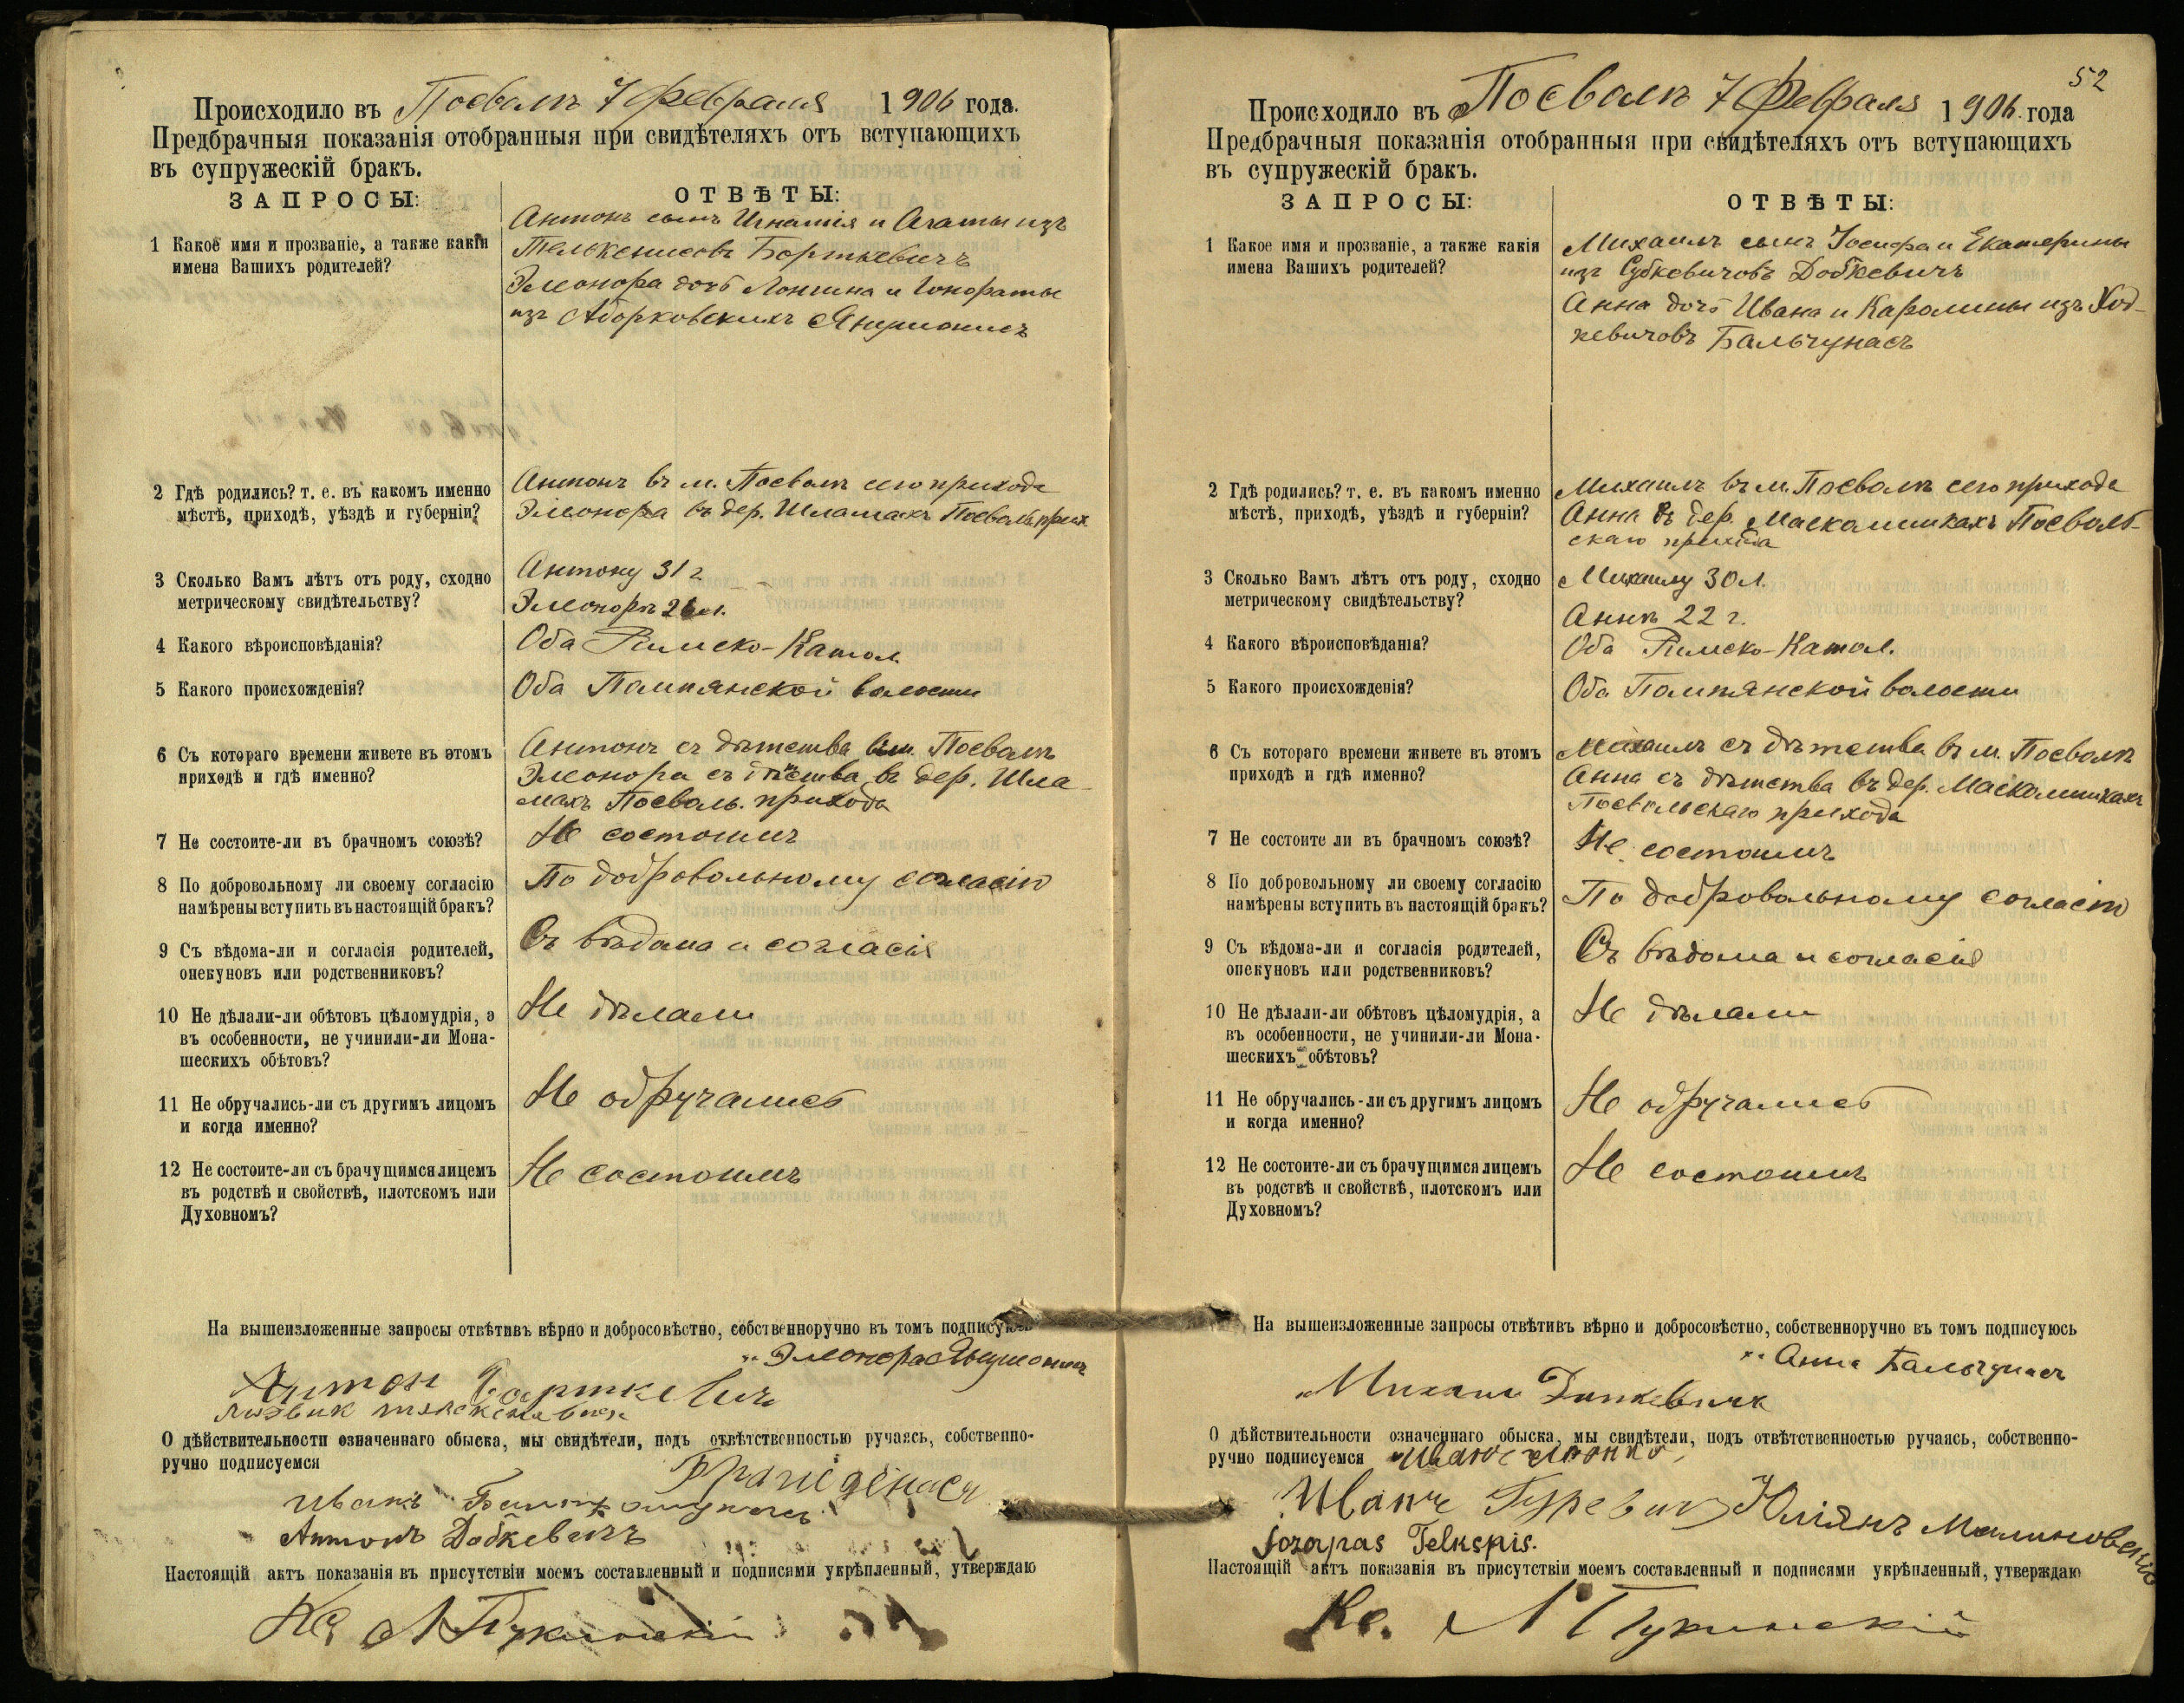 Происходило въ Поеволѣ 7 Февраля 1906 года.
Предбрачныя показанія отобранныя при свидѣтеляхъ отъ вступающихъ
въ супружескій бракъ.
ЗАПРОСЫ:
ОТВѢТЫ:
1 Какое имя и прозваніе, а также какія
имена Вашихъ родителей?
Антонъ сынъ Игнатія и Агаты изъ
Борткевичъ
Элеонора дочь Лонгина и Гонораты
изъ
2 Гдѣ родились? т. е. въ какомъ именно
мѣстѣ, приходѣ, уѣздѣ и губерніи?
Антонъ въ м. Поеволѣ сего прихода
Элеонора въ дер. Шламахъ Поевольс. прих.
3 Сколько Вамъ лѣтъ отъ роду, сходно
метрическому свидѣтельству?
Антону 31 г.
Элеонорѣ
4 Какого вѣроисповѣданія?
Оба Римско-Катол.
5 Какого происхожденія?
Оба Помпянской волости
6 Съ котораго времени живете въ этомъ
приходѣ и гдѣ именно?
Антонъ съ дѣтства въ м. Поеволѣ
Элеонора съ дѣтства въ дер. Шла-
махъ Поеволь. прихода
7 Не состоите-ли въ брачномъ союзѣ?
Не состоимъ
8 По добровольному ли своему согласію
намѣрены вступить въ настоящій бракъ?
По добровольному согласію
9 Съ вѣдома-ли и согласія родителей,
опекуновъ или родственниковъ?
Съ вѣдома и согласія
10 Не дѣлали-ли обѣтовъ цѣломудрія, а
въ особенности, не учинили-ли Мона-
шескихъ обѣтовъ?
Не дѣлали
11 Не обручались-ли съ другимъ лицомъ
и когда именно?
Не обручались
12 Не состоите-ли съ брачущимся лицемъ
въ родствѣ и свойствѣ, плотскомъ или
Духовномъ?
Не состоимъ
На вышеизложенные запросы отвѣтивъ вѣрно и добросовѣстно, собственноручно въ томъ подписуюсь
Элеонора
Антон Барткевичъ
О дѣйствительности означеннаго обыска, мы свидѣтели, подъ отвѣтственностью ручаясь, собственно-
ручно подписуемся
Иванъ
Антонъ Добкевичъ
Настоящій актъ показанія въ присутствіи моемъ составленный и подписями укрѣпленный, утверждаю
Кс.
52
Происходило въ Поеволѣ 7 Февраля 1906 года
Предбрачныя показанія отобранныя при свидѣтеляхъ отъ вступающихъ
въ супружескій бракъ.
ЗАПРОСЫ:
ОТВѢТЫ:
1 Какое имя и прозваніе, а также какія
имена Вашихъ родителей?
Михаилъ сынъ Іосифа и Екатерины
изъ Субкевичовъ Добкевичъ
Анна дочь Ивана и Каролины изъ Ход-
кевичовъ Бальчунасъ
2 Гдѣ родились? т. е. въ какомъ именно
мѣстѣ, приходѣ, уѣздѣ и губерніи?
Михаилъ въ м. Поеволѣ сего прихода
Анна въ дер. Маскалишкахъ Поеволь-
скаго прихода
3 Сколько Вамъ лѣтъ отъ роду, сходно
метрическому свидѣтельству?
Михаилу 30 л.
Аннѣ 22 г.
4 Какого вѣроисповѣданія?
Оба Римско-Катол.
5 Какого происхожденія?
Оба Помпянской волости
6 Съ котораго времени живете въ этомъ
приходѣ и гдѣ именно?
Михаилъ съ дѣтства въ м. Поеволѣ
Анна съ дѣтства въ дер. Маскалишкахъ
Поевольскаго прихода
7 Не состоите ли въ брачномъ союзѣ?
Не состоимъ
8 По добровольному ли своему согласію
намѣрены вступить въ настоящій бракъ?
По добровольному согласію
9 Съ вѣдома-ли и согласія родителей,
опекуновъ или родственниковъ?
Съ вѣдома и согласія
10 Не дѣлали-ли обѣтовъ цѣломудрія, а
въ особенности, не учинили-ли Мона-
шескихъ обѣтовъ?
Не дѣлали
11 Не обручались-ли съ другимъ лицомъ
и когда именно?
Не обручались
12 Не состоите-ли съ брачущимся лицемъ
въ родствѣ и свойствѣ, плотскомъ или
Духовномъ?
Не состоимъ
На вышеизложенные запросы отвѣтивъ вѣрно и добросовѣстно, собственноручно въ томъ подписуюсь
Анна Бальчунасъ
О дѣйствительности означеннаго обыска, мы свидѣтели, подъ отвѣтственностью ручаясь, собственно-
ручно подписуемся
Иванъ Гуревичъ Юліянъ Малиновскій
jozapas Telksnis.
Настоящій актъ показанія въ присутствіи моемъ составленный и подписями укрѣпленный, утверждаю
Кс.